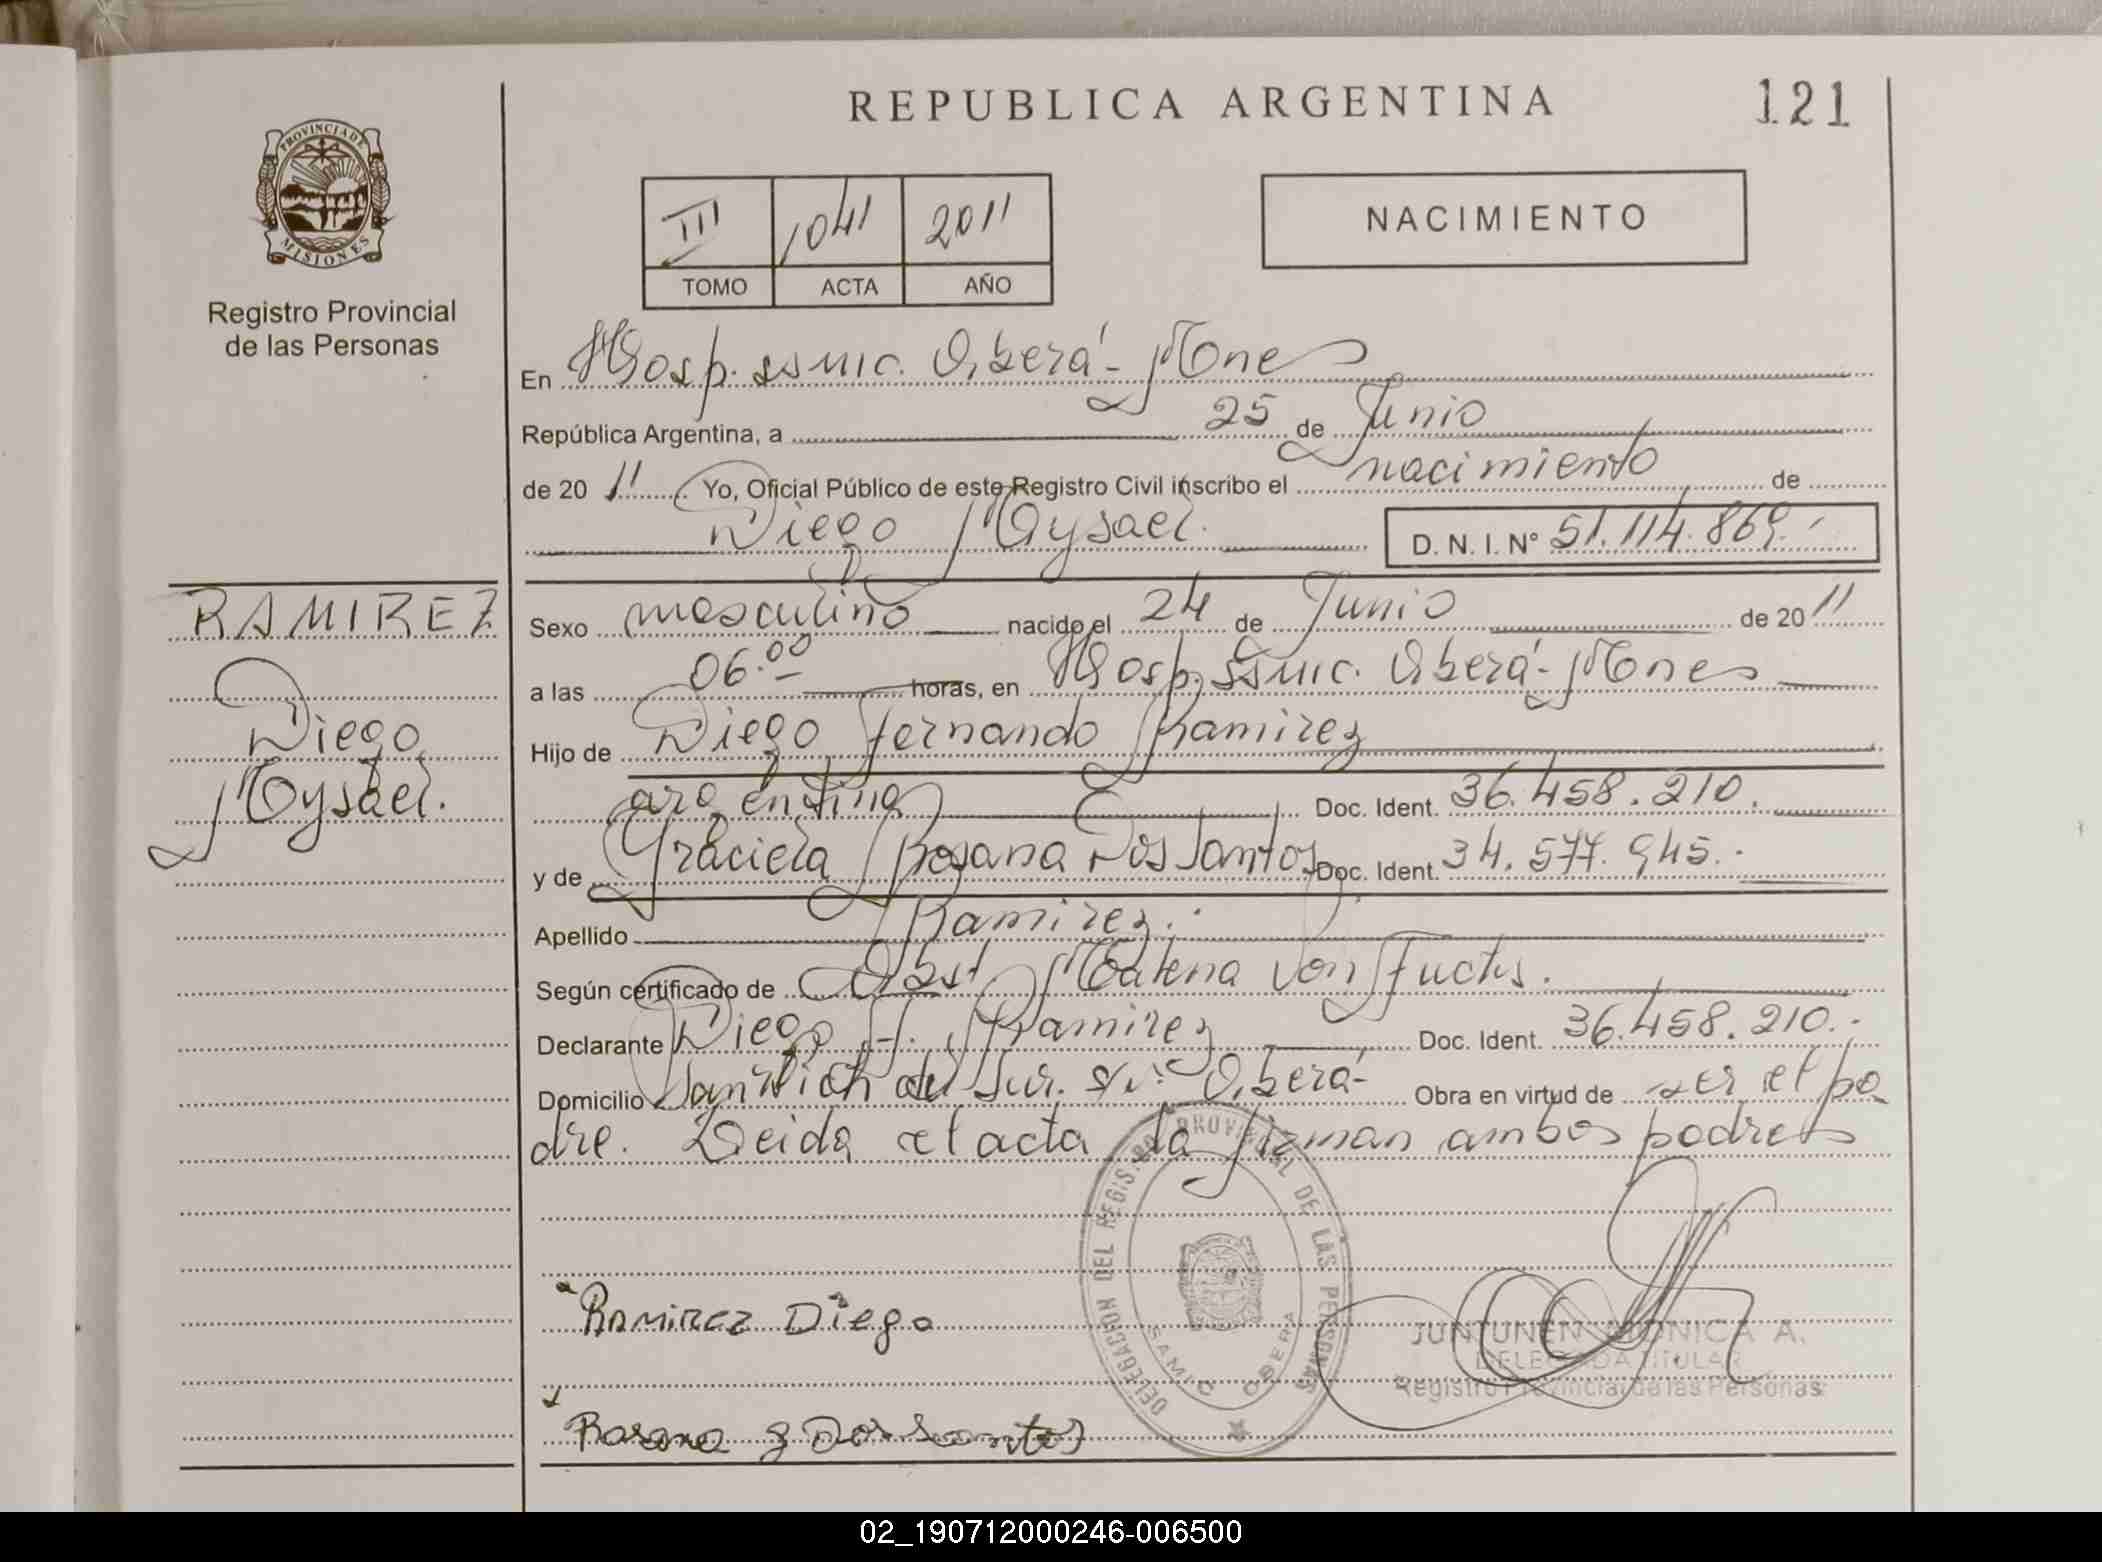 REPUBLICA ARGENTINA
121
PROVINCIA DE
MISIONES
Registro Provincial
de las Personas
III 1041 2011
TOMO ACTA AÑO
NACIMIENTO
En Hosp. SSMIC. Oberá - Mnes
República Argentina, a 25 de Junio
de 2011 Yo, Oficial Público de este Registro Civil inscribo el nacimiento de
Diego Moysael. D. N. I. Nº 51.114.869.-
RAMIREZ
Diego
Moysael.
Sexo masculino nacido el 24 de Junio de 2011
a las 06.00 horas, en Hosp. SSMIC. Oberá - Mnes
Hijo de Diego Fernando Ramirez
argentino Doc. Ident. 36.458.210.
y de Graciela Rosana Dos Santos Doc. Ident. 34.577.945.-
Apellido Ramirez.-
Según certificado de Obst. von
Declarante Diego F. Ramirez Doc. Ident. 36.458.210.-
Domicilio Sandwich del Sur. s/nº Oberá- Obra en virtud de ser el pa
dre. Leida el acta la firman ambos padres
DELEGACION DEL REGISTRO PROVINCIAL DE LAS PERSONAS
SAMIC OBERA
RAMIREZ Diego
Rosana g Dos Santos
JUNTUNEN MONICA A.
DELEGADA TITULAR
Registro Provincial de las Personas
02_190712000246-006500